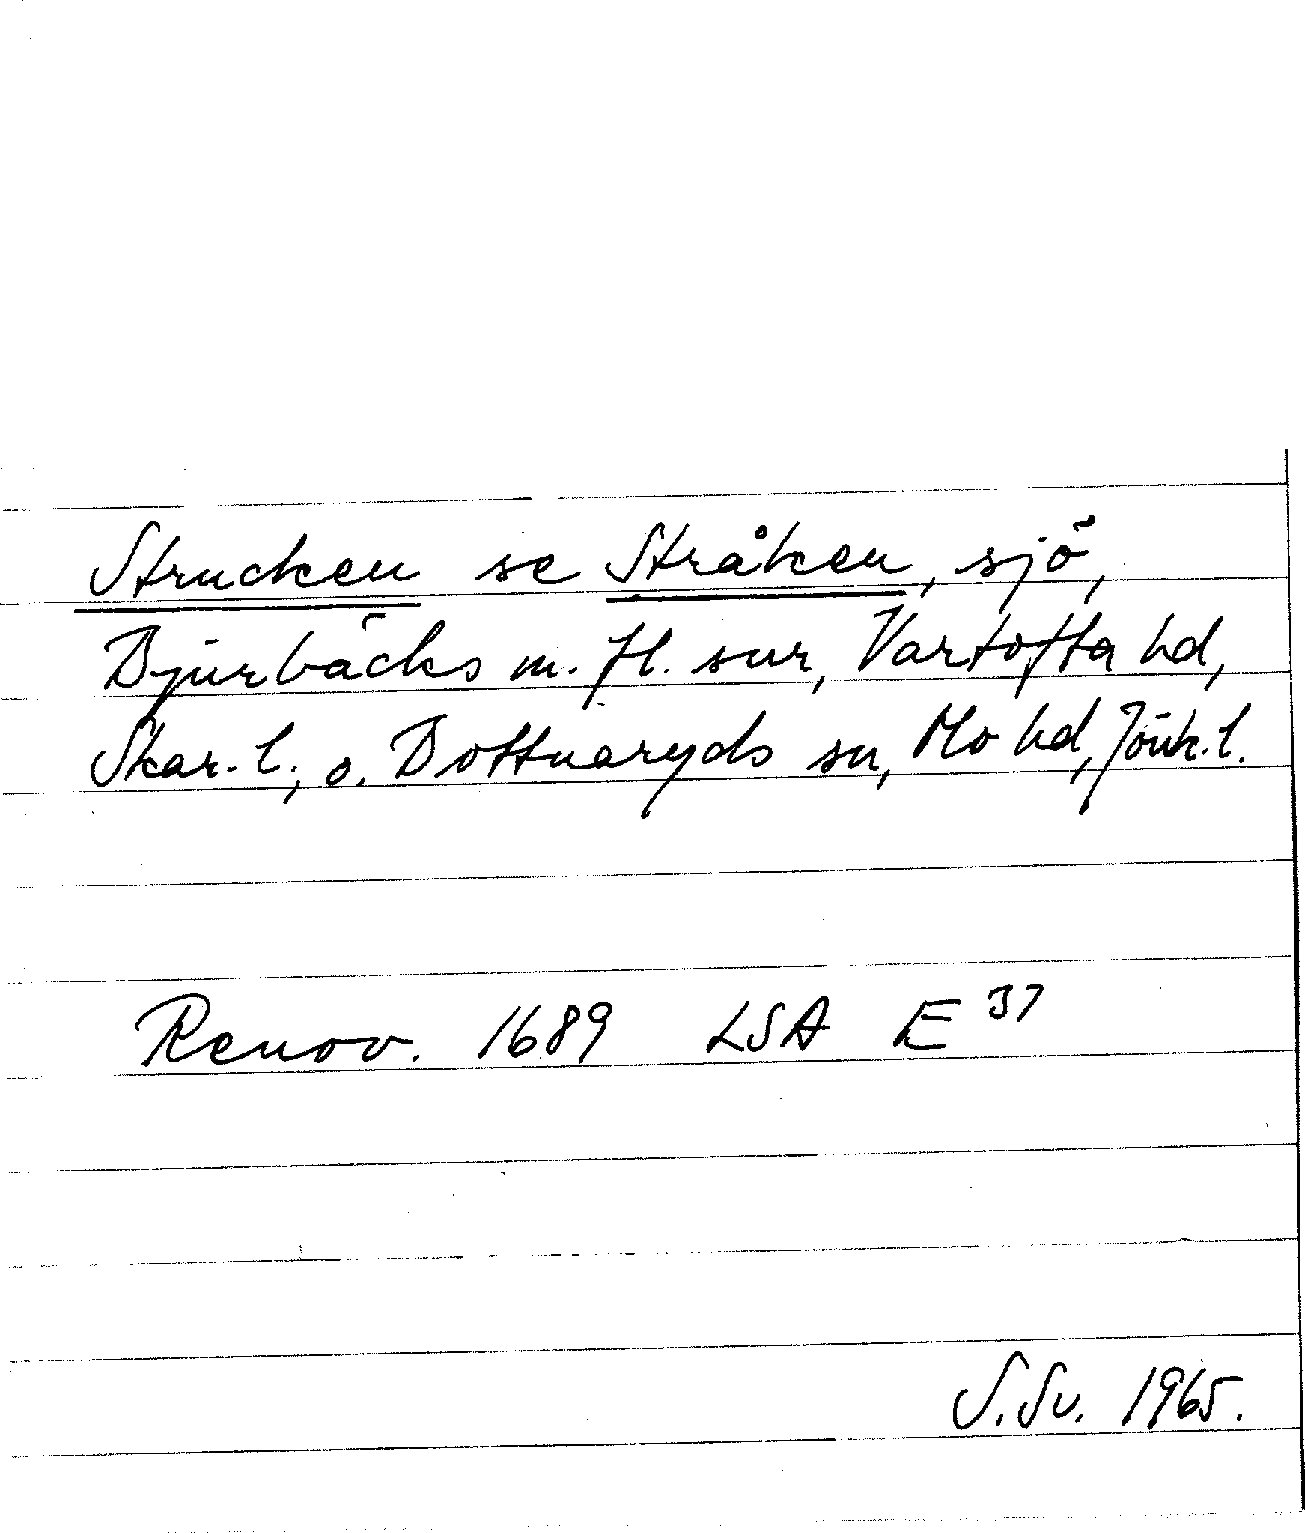 Strucken se Stråken, sjö,
Bjurbäcks m. fl. snr, Vartofta hd,
Skar. l.; o. Bottnaryds sn, Mo hd, Jönk. l.
Renov. 1689 LSA E 37
S. Sv. 1965.